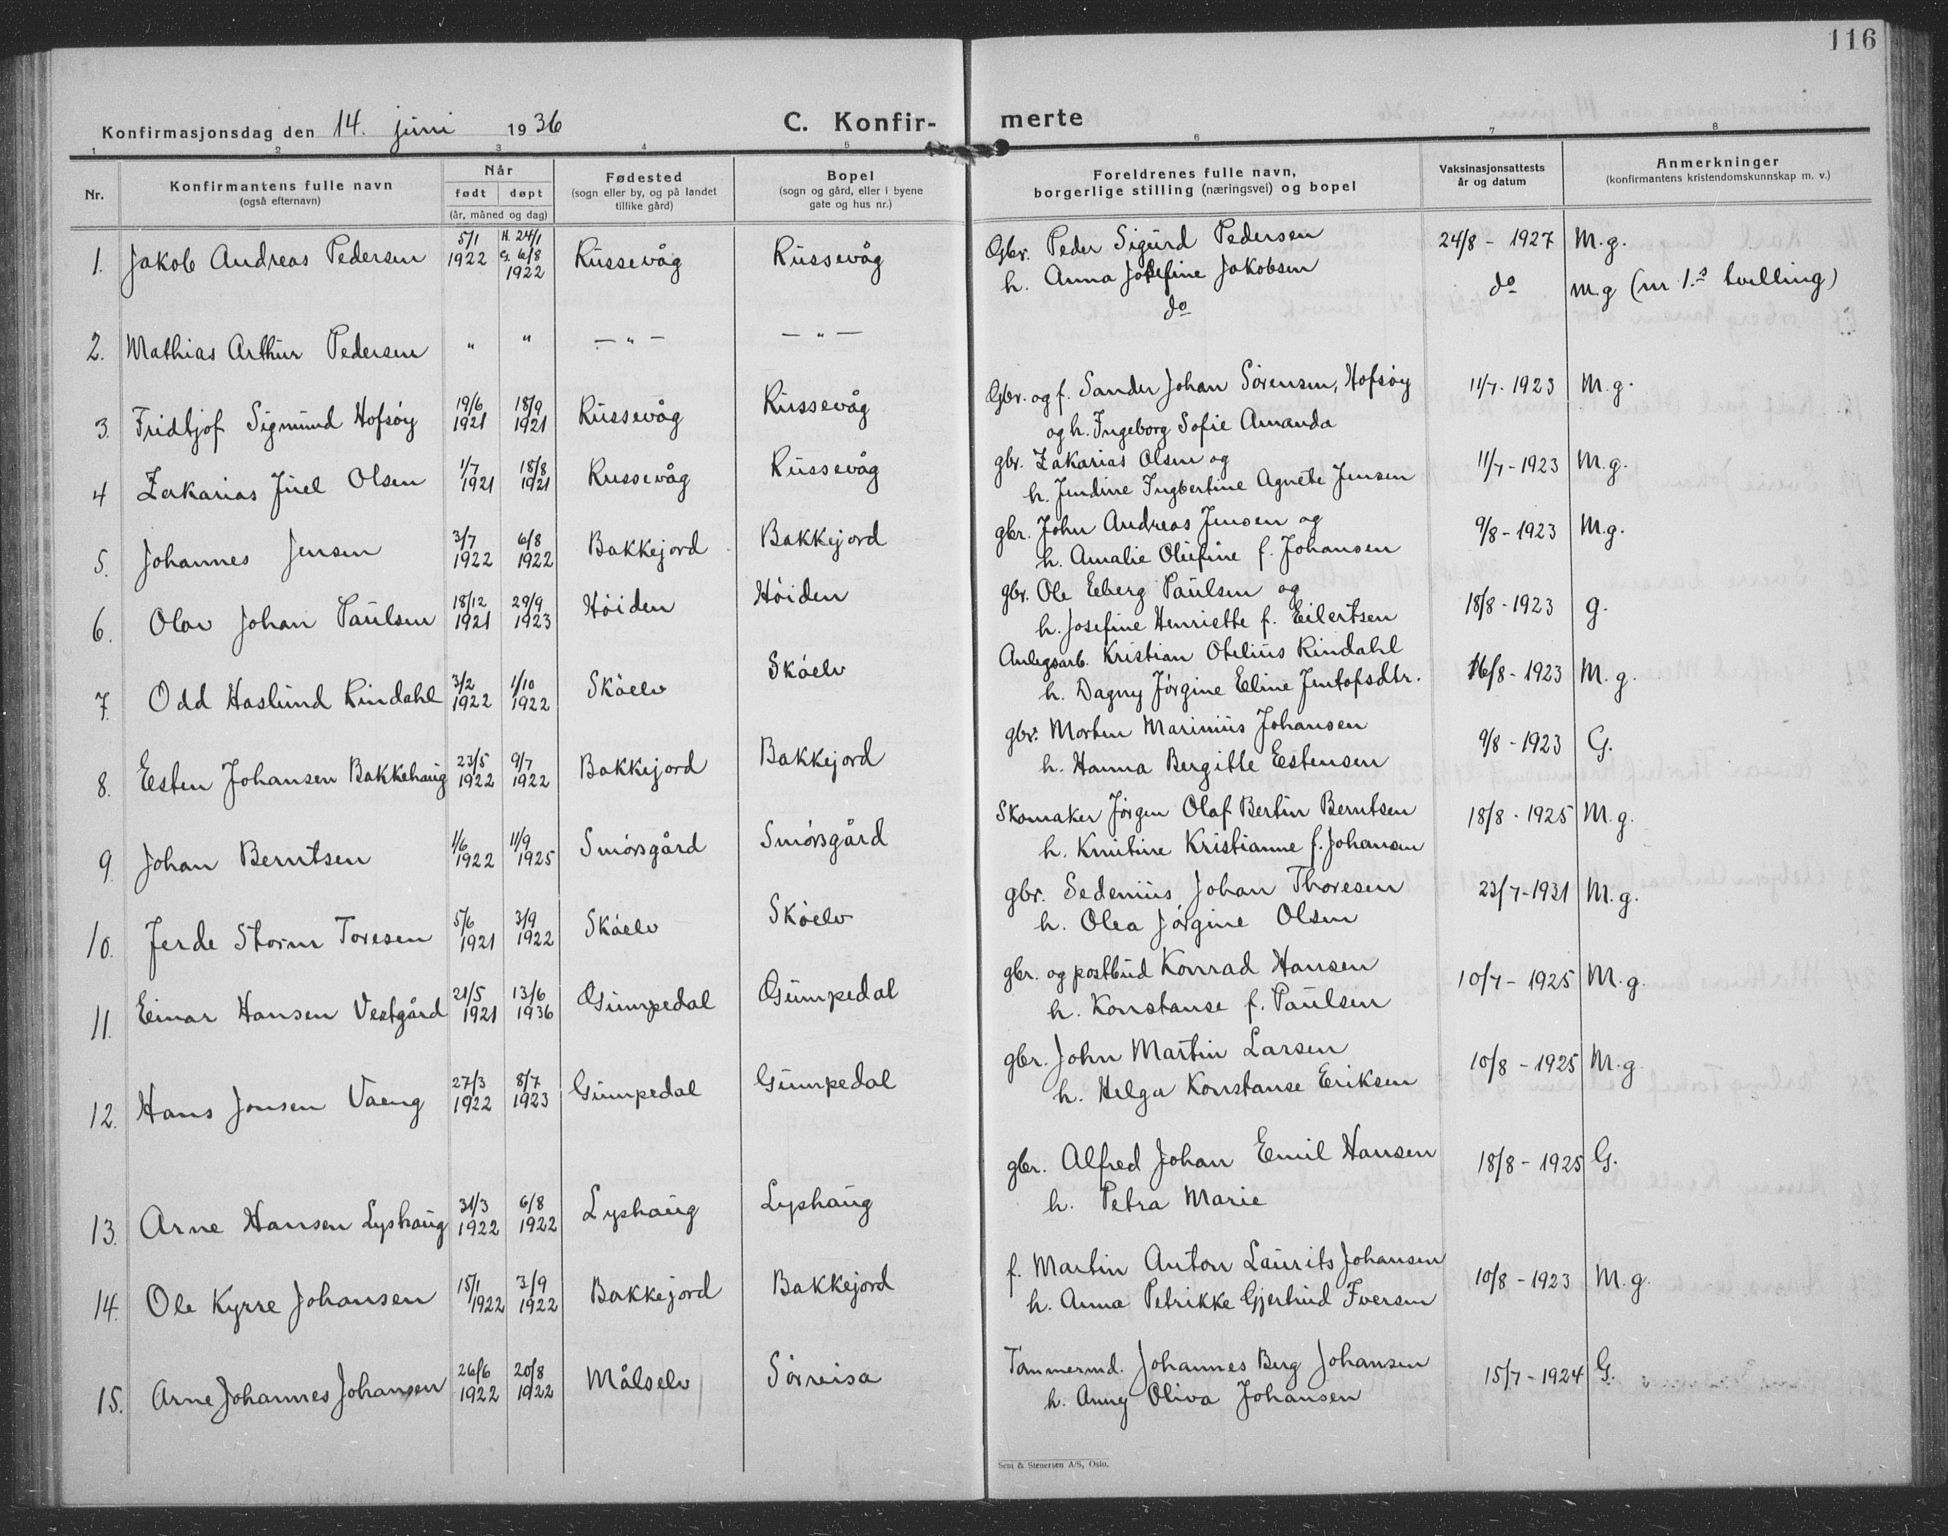 116
Konfirmasjonsdag den 14. juni 1936
C. Konfir- merte
1 2 3 4 5 6 7 8
Nr.
Konfirmantens fulle navn
(også efternavn)
Når
født døpt
(år, måned og dag)
Fødested
(sogn eller by, og på landet
tillike gård)
Bopel
(sogn og gård, eller i byene
gate og hus nr.)
Foreldrenes fulle navn,
borgerlige stilling (næringsvei) og bopel
Vaksinasjonsattests
år og datum
Anmerkninger
(konfirmantens kristendomskunnskap m. v.)
1. Jakob Andreas Pedersen 5/1 1922 H. 24/1 G 6/8 1922 Russevåg Russevåg Gbr. Peder Sigurd Pedersen 24/8 - 1927 M.g.
h. Anna Josefine Jakobsen
2. Mathias Arthur Pedersen " " — " — — " — do do M.g (m 1.s tvilling)
3. Fridtjof Sigmund Hofsöy 19/6 1921 18/9 1921 Russevåg Russevåg Gbr. og f. Sander Johan Sörensen, Hofsöy 11/7. 1923 M.g.
og h. Ingeborg Sofie Amanda
4 Zakarias Juel Olsen 1/7 1921 18/8 1921 Russevåg Russevåg gbr. Zakarias Olsen og 11/7 - 1923 M.g.
h. Jendine Ingbertine Agnete Jensen
5. Johannes Jensen 3/7 1922 6/8 1922 Bakkejord Bakkejord gbr. John Andreas Jensen og 9/8 - 1923 M.g.
h. Amalie Oliefine f. Johansen
6. Olav Johan Paulsen 18/12 1921 29/9 1923 Höiden Höiden gbr. Ole Eberg Paulsen og 18/8 - 1923 g.
h. Josefine Henriette f. Eilertsen
7. Odd Haslund Rindahl 3/2 1922 1/10 1922 Sköelv Sköelv Anlegsarb. Kristian Otelius Rindahl 16/8 - 1923 M.g.
h. Dagny Jörgine Eline Jentofsdtr.
8. Esten Johansen Bakkehaug 23/5 1922 9/7 1922 Bakkejord Bakkejord gbr. Morten Marinius Johansen 9/8 - 1923 G.
h. Hanna Bergitte Estensen
9. Johan Berntsen 1/6 1922 11/9 1925 Smörsgård Smörsgård Skomaker Jörgen Olaf Bertin Berntsen 18/8 . 1925 M.g.
h. Kristianne f. Johansen
10. Jerde Storm Toresen 5/6 1921 3/9 1922 Sköelv Sköelv gbr. Sedenius Johan Thoresen 23/7 - 1931 M.g.
h. Olea Jörgine Olsen
11. Einar Hansen Vestgård 21/5 1921 13/6 1936 Gumpedal Gumpedal gbr. og postbud Konrad Hansen 10/7 - 1925 M.g.
h. Konstanse f. Paulsen
12. Hans Jonsen Vaeng 27/3 1922 8/7 1923 Gumpedal Gumpedal gbr. John Martin Larsen 10/8 - 1925 M.g
h. Helga Konstanse Eriksen
13. Arne Hansen Lyshaug 31/3 1922 6/8 1922 Lyshaug Lyshaug gbr. Alfred Johan Emil Hansen 18/8 - 1925 G.
h. Petra Marie
14. Ole Kyrre Johansen 15/1 1922 3/9 1922 Bakkejord Bakkejord f. Martin Anton Laurits Johansen 10/8 - 1923 M.g.
h. Anna Petrikke Gjertrud Iversen
15. Arne Johannes Johansen 26/6 1922 20/8 1922 Målselv Sörreisa Tömmermd. Johannes Berg Johansen 15/7 - 1924 G.
h. Anny Oliva Johansen
Sem & Stenersen A/S, Oslo.